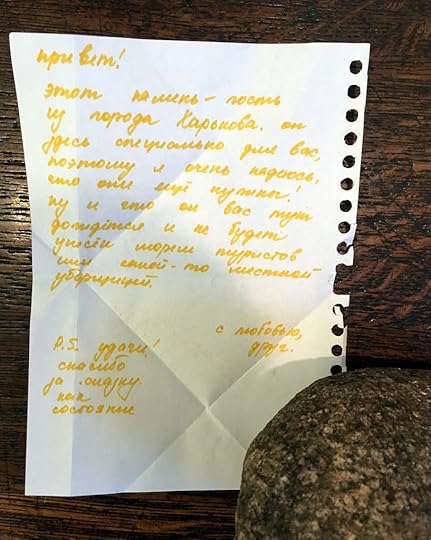 привет!
этот камень – гость
из города Харькова. он
здесь специально для вас,
поэтому я очень надеюсь,
что они ещё нужны!
ну и что он вас тут
дождётся и не будет
унесён морем туристов
или какой-то местной
уборщицей.
с любовью,
друг.
P.S. удачи!
спасибо
за сказку
как
состояние